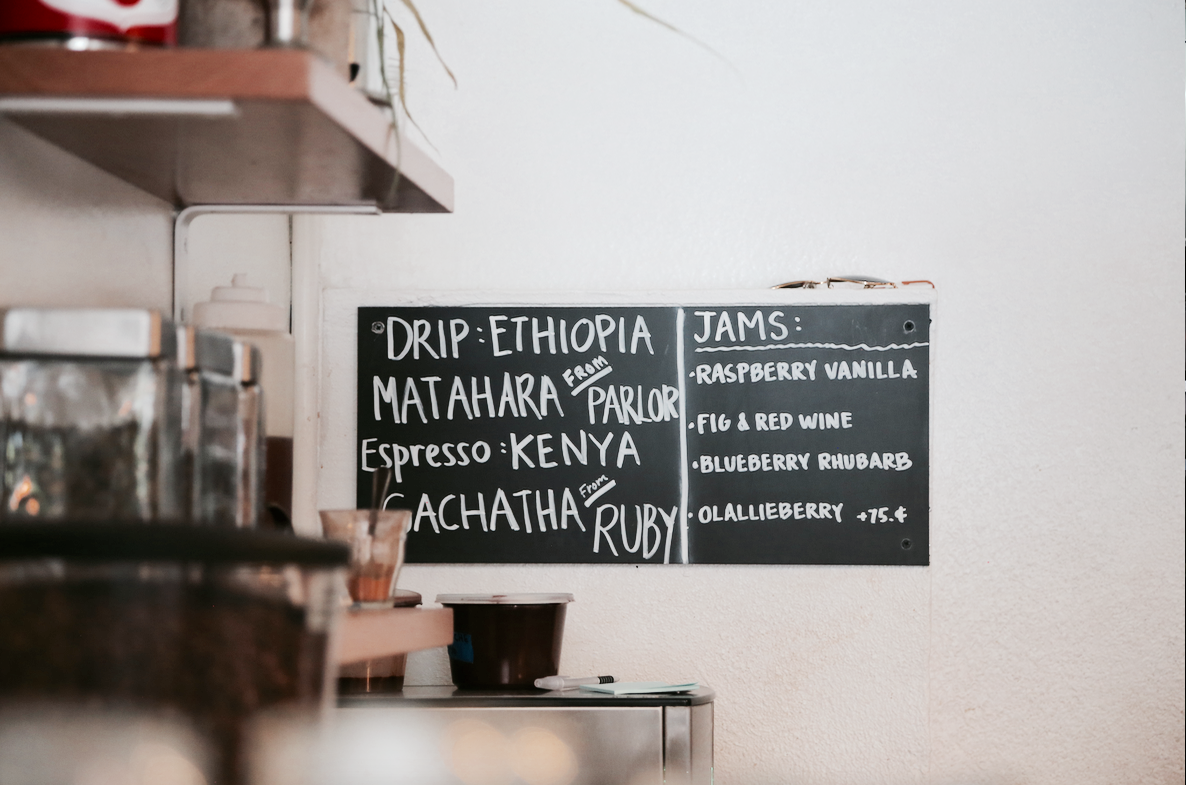 DRIP: ETHIOPIA
MATAHARA FROM PARLOR
Espresso: KENYA
GACHATHA From RUBY
JAMS:
·RASPBERRY VANILLA
·FIG & RED WINE
·BLUEBERRY RHUBARB
·OLALLIEBERRY +75.¢